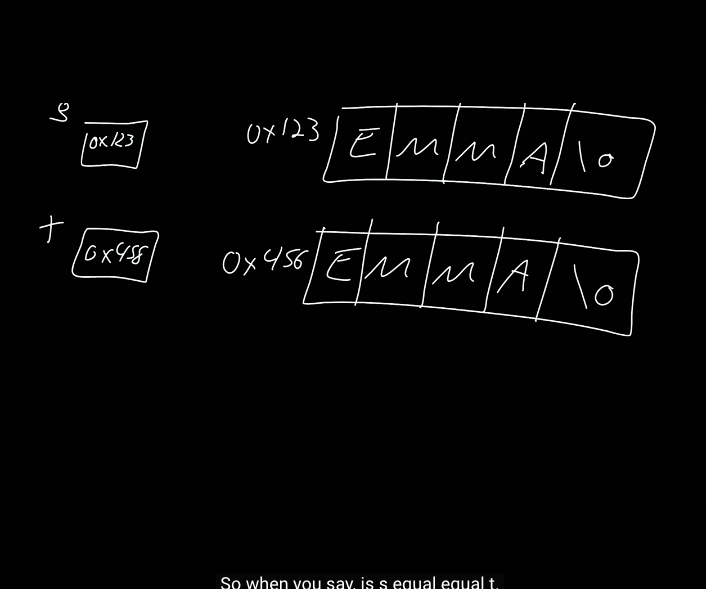 s
0x123 0x123 E M M A \0
t
0x456 0x456 E M M A \0
So when you say, is s equal equal t,